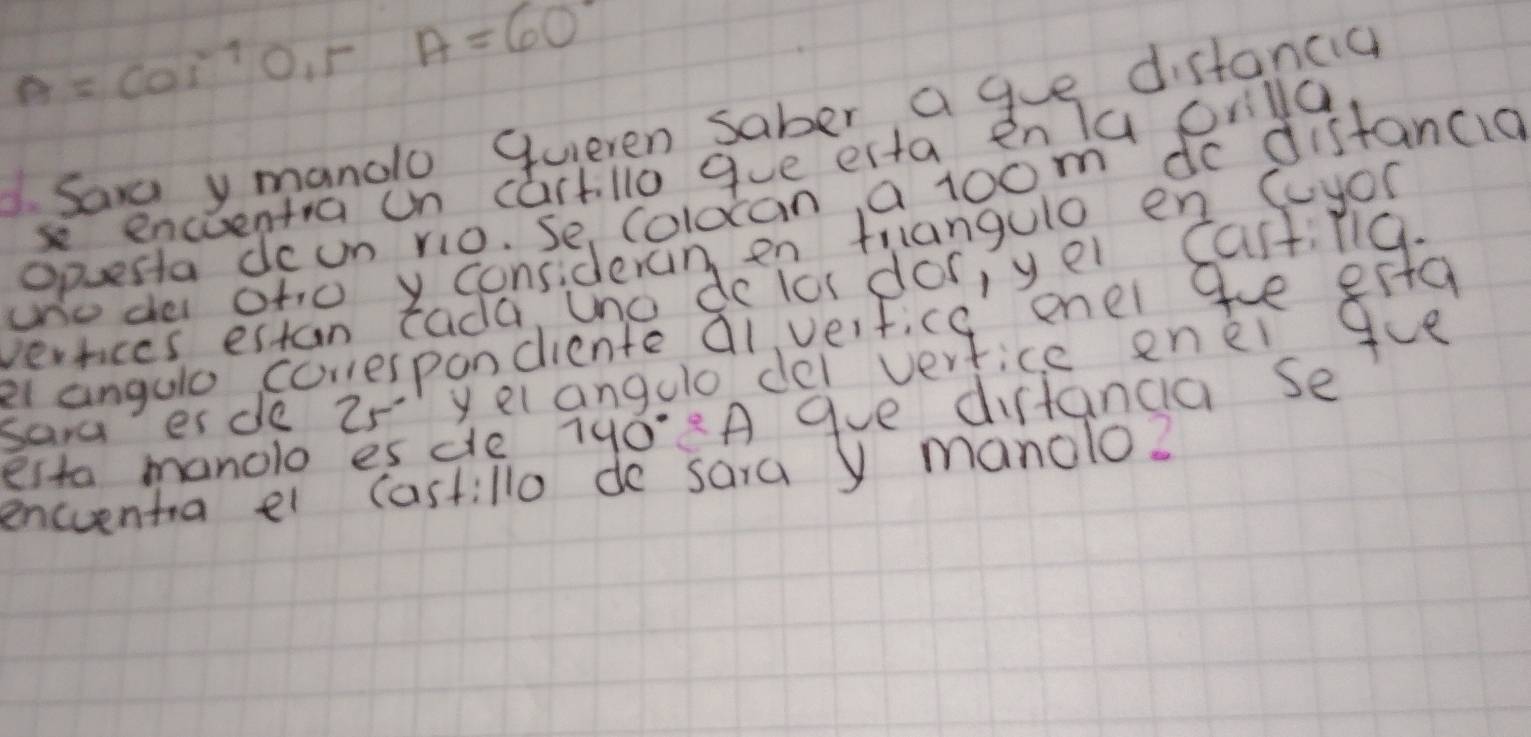 A = cos⁻¹ 0,5 A = 60°
d. Sara y manolo quieren saber a que distancia
se encuentra un castillo que esta en la orilla
opuesta de un rio. Se colocan a 100m de distancia
uno del otro y consideran en triangulo en cuyos
vertices estan cada uno de los dos, y el castilla.
el angulo correspondiente al vertice en el que esta
sara es de 25° y el angulo del vertice en el que
esta manolo es de 140° ¿A que distancia se
encuentra el castillo de sara y manolo?